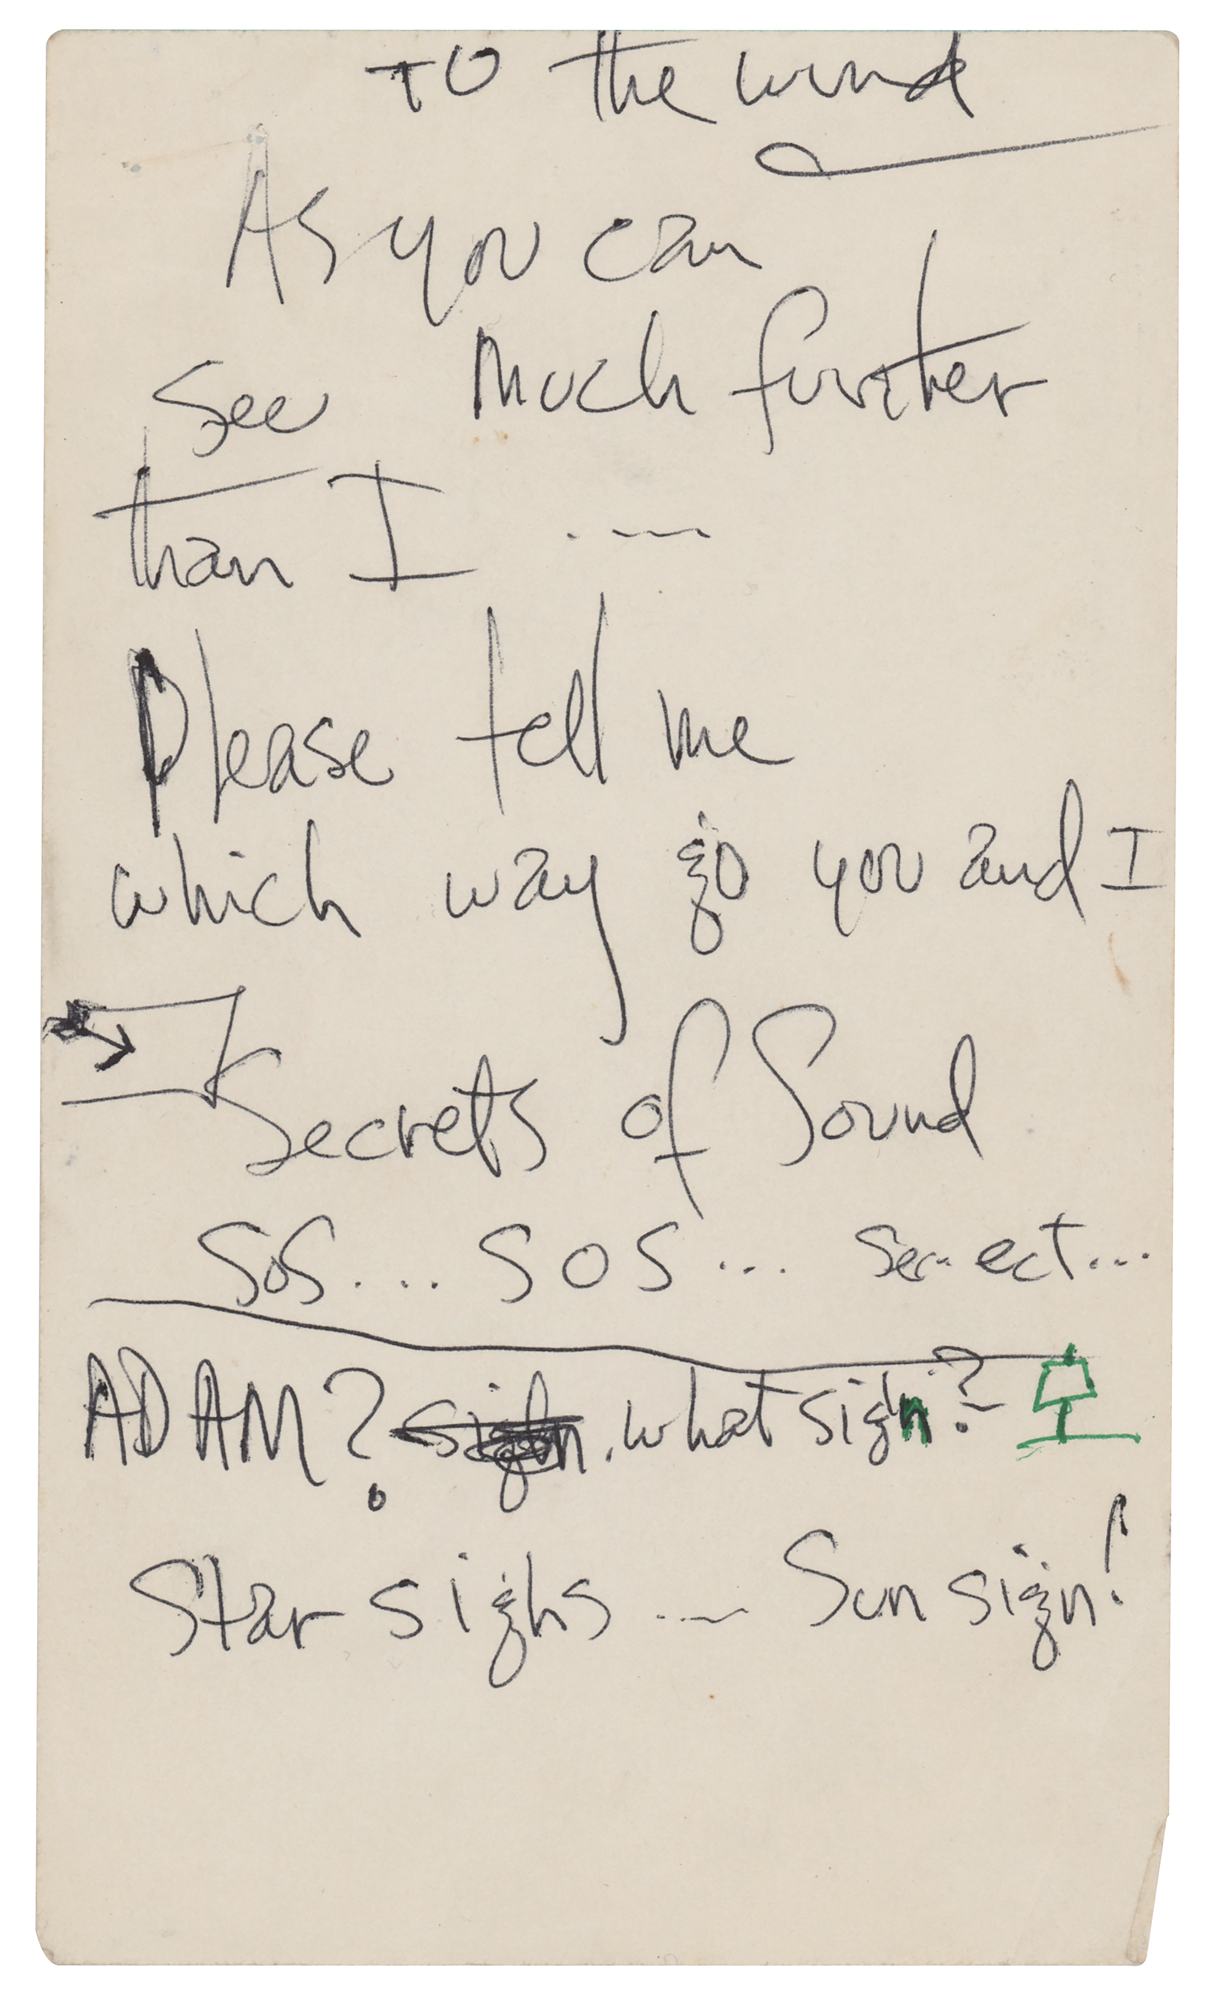 to the wind
As you can
See much further
than I ....
Please tell me
which way go you and I
Secrets of Sound
SoS.... S O S... Sec-ect...
ADAM? sign. what sign?
Star sighs .... Sun sign!